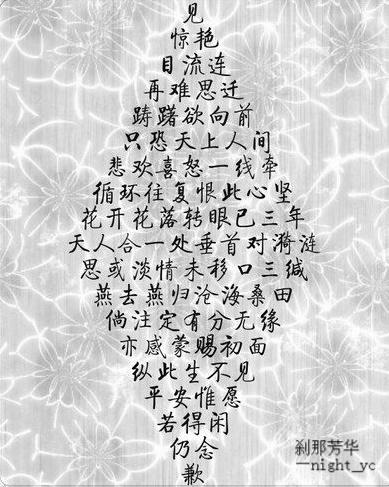 见
惊艳
目流连
再难思迁
踌躇欲向前
只恐天上人间
悲欢喜怒一线牵
循环往复恨此心坚
花开花落转眼已三年
天人合一处垂首对漪涟
思或淡情未移口三缄
燕去燕归沧海桑田
倘注定有分无缘
亦感蒙赐初面
纵此生不见
平安惟愿
若得闲
仍念
歉
刹那芳华
一night_yc